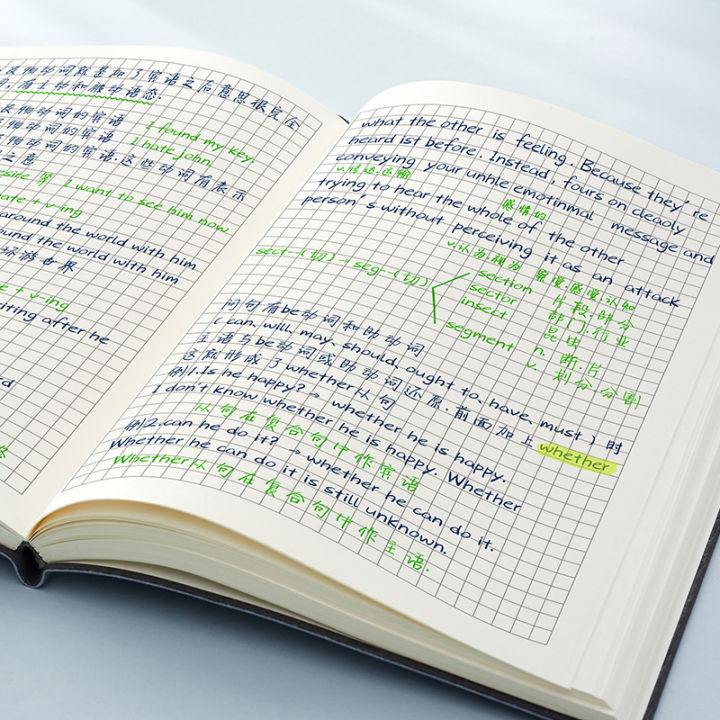 及物动词就是加了宾语之后意思很完全
有主动和被动语态.
及物动词的宾语
I found my key.
物动词的宾语
I hate john
物动词的宾语.这些动词有展示
之意
esire 等 I want to see him now.
ate + v-ing
around the world with him
ound the world with him
环游世界
e + v-ing
itting after he
d
what the other is feeling. Because they're
heard ist before. Instead, fours on cleaoly
conveying your unhle emotinmal message and
v.传达.运输
感情的
trying to hear the whole of the other
person's without perceiving it as an attack
v.认为,视为 察觉.感觉.认知
sect-(切)→seg-(切)
section 片段.部分
sector 部门.行业
insect 昆虫
segment n. 断.片
v. 划分.分割
问句有be动词和助动词
(can, will, may, should, ought to, have, must) 时
主语与be动词或助动词还原.前面加上whether
这就形成了whether从句
例1.Is he happy?→ whether he is happy.
I don't know whether he is happy. Whether
从句在复合句中作宾语
例2.can he do it? → whether he can do it.
Whether he can do it is still unknown.
Whether从句在复合句中作主语.